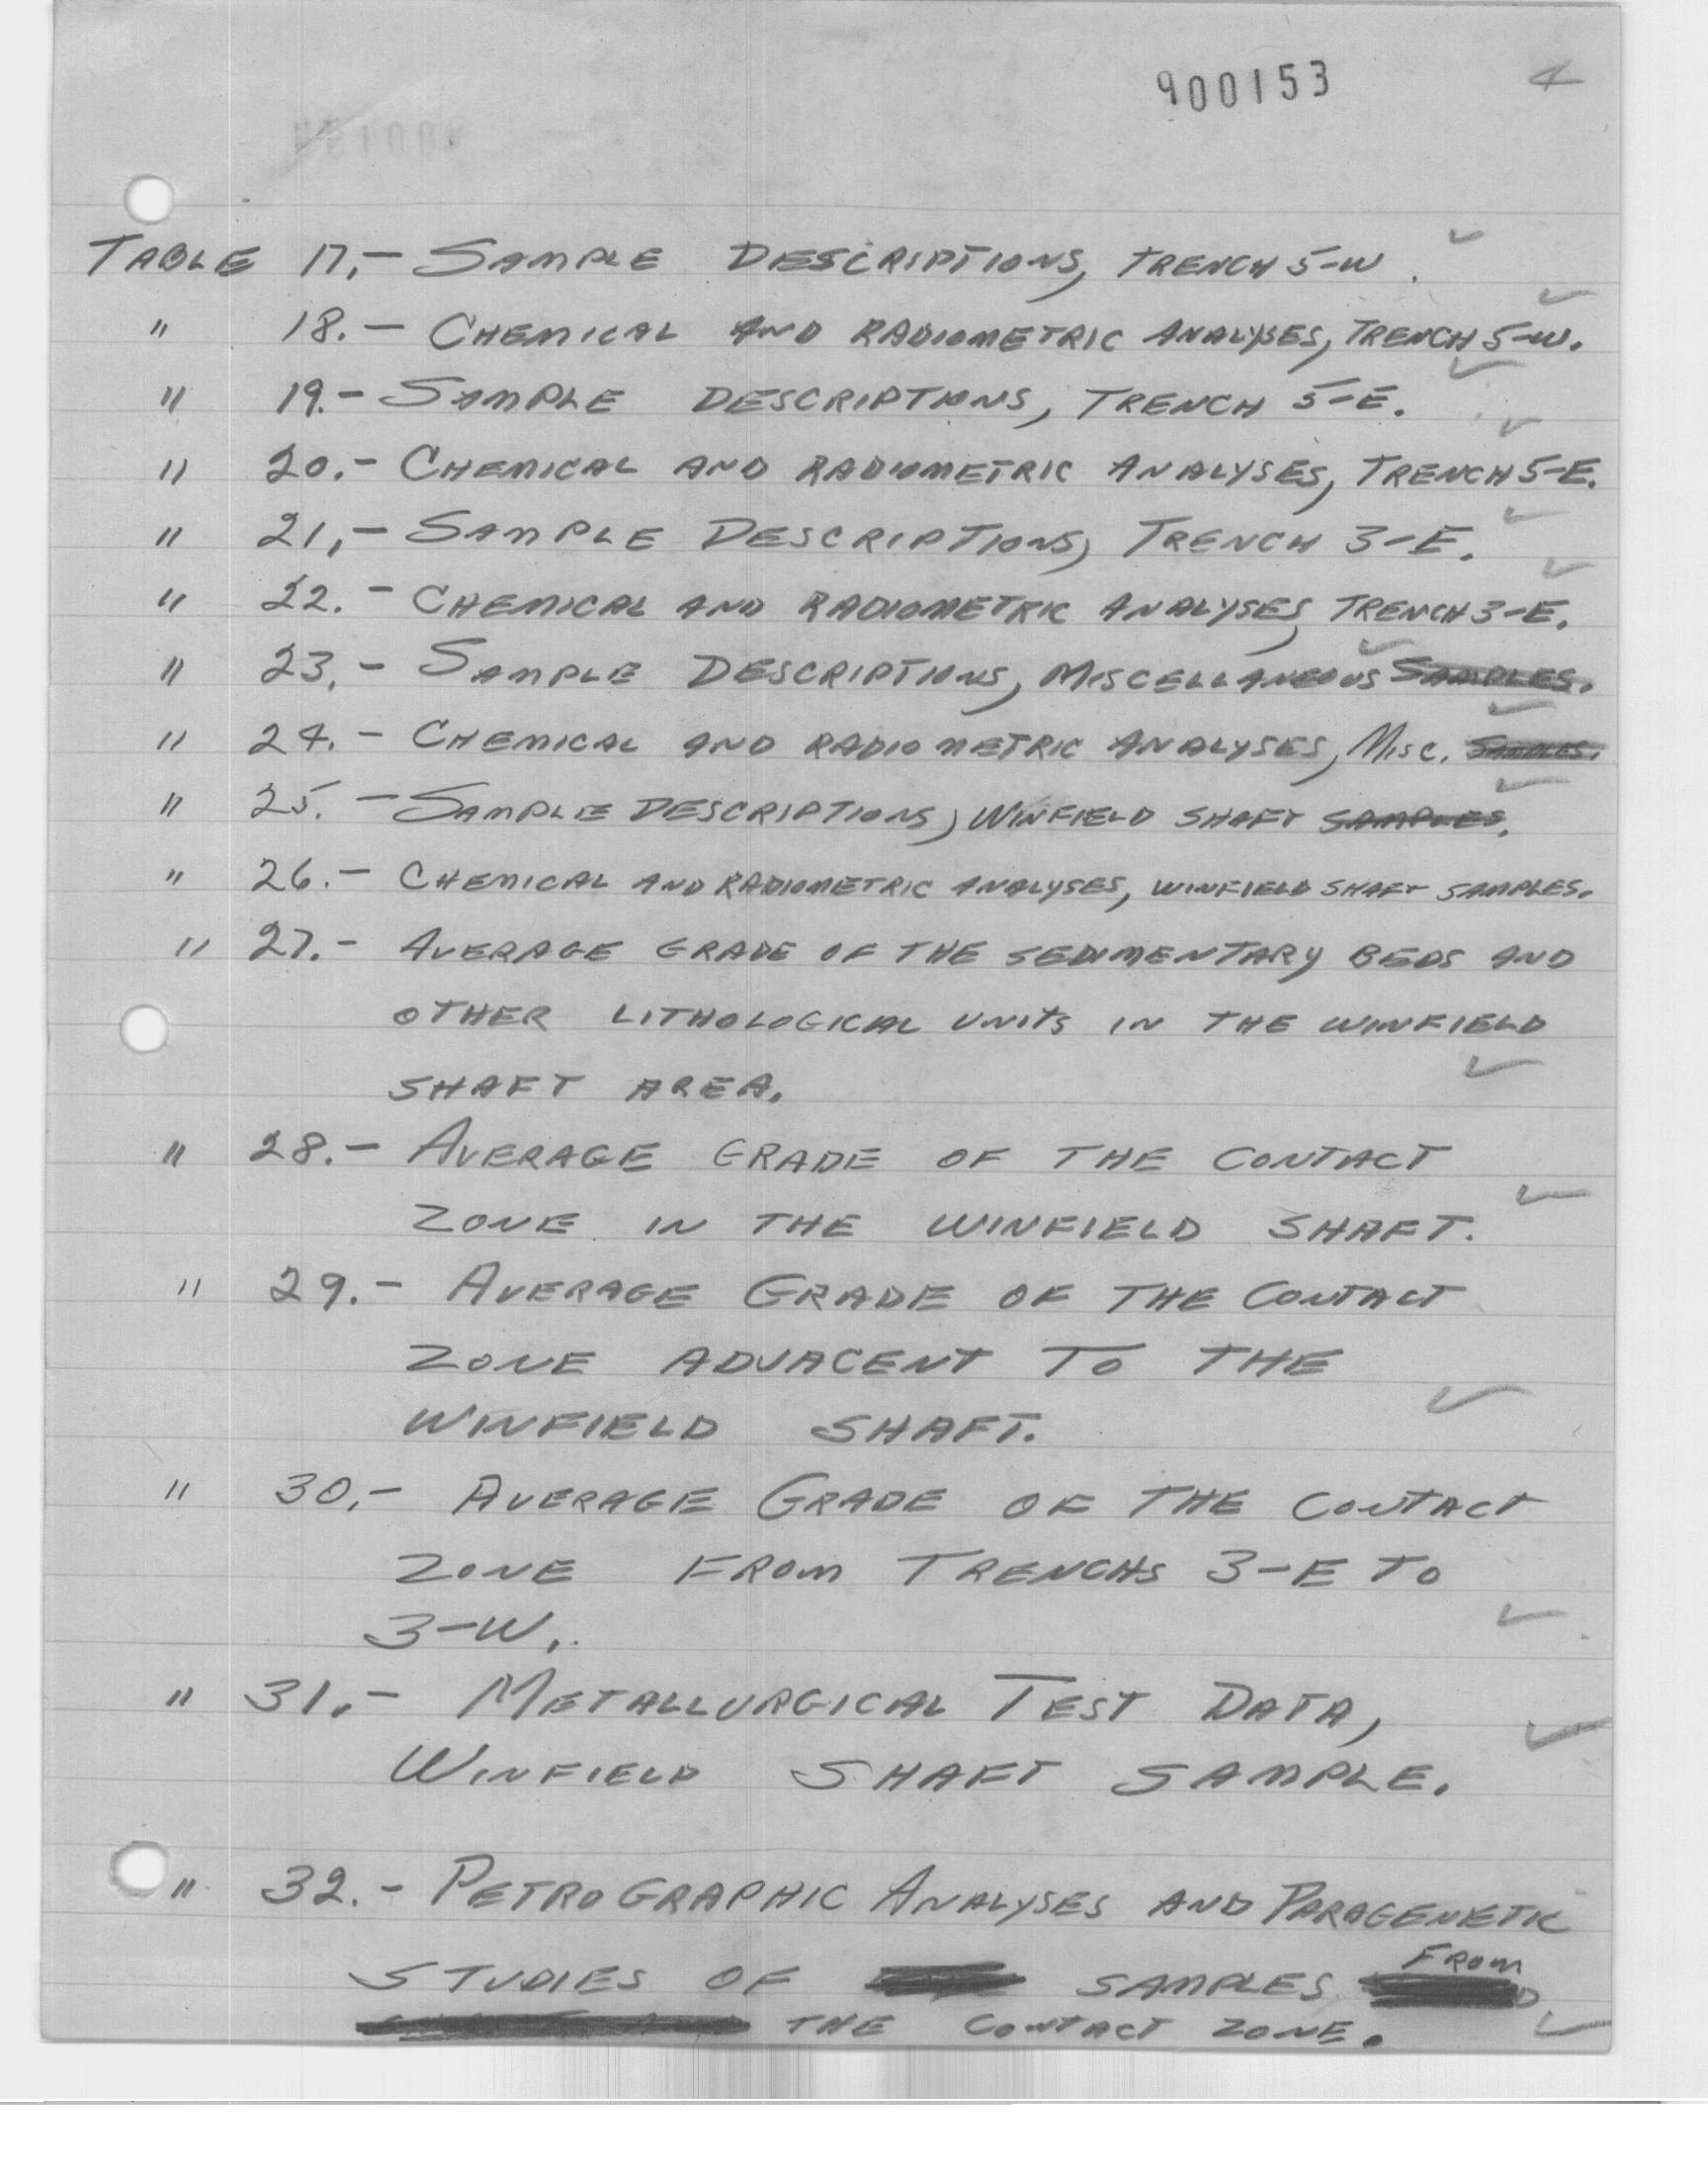 900153 4
TABLE 17.- SAMPLE DESCRIPTIONS, TRENCH 5-W.
" 18.- CHEMICAL AND RADIOMETRIC ANALYSES, TRENCH 5-W.
" 19.- SAMPLE DESCRIPTIONS, TRENCH 5-E.
" 20.- CHEMICAL AND RADIOMETRIC ANALYSES, TRENCH 5-E.
" 21,- SAMPLE DESCRIPTIONS, TRENCH 3-E.
" 22.- CHEMICAL AND RADIOMETRIC ANALYSES, TRENCH 3-E.
" 23.- SAMPLE DESCRIPTIONS, MISCELLANEOUS SAMPLES.
" 24.- CHEMICAL AND RADIOMETRIC ANALYSES, MISC. SAMPLES.
" 25.- SAMPLE DESCRIPTIONS, WINFIELD SHAFT SAMPLES.
" 26.- CHEMICAL AND RADIOMETRIC ANALYSES, WINFIELD SHAFT SAMPLES.
" 27.- AVERAGE GRADE OF THE SEDIMENTARY BEDS AND
OTHER LITHOLOGICAL UNITS IN THE WINFIELD
SHAFT AREA.
" 28.- AVERAGE GRADE OF THE CONTACT
ZONE IN THE WINFIELD SHAFT.
" 29.- AVERAGE GRADE OF THE CONTACT
ZONE ADJACENT TO THE
WINFIELD SHAFT.
" 30,- AVERAGE GRADE OF THE CONTACT
ZONE FROM TRENCHS 3-E TO
3-W.
" 31.- METALLURGICAL TEST DATA,
WINFIELD SHAFT SAMPLE.
" 32.- PETROGRAPHIC ANALYSES AND PARAGENETIC
STUDIES OF SAMPLES FROM
THE CONTACT ZONE.